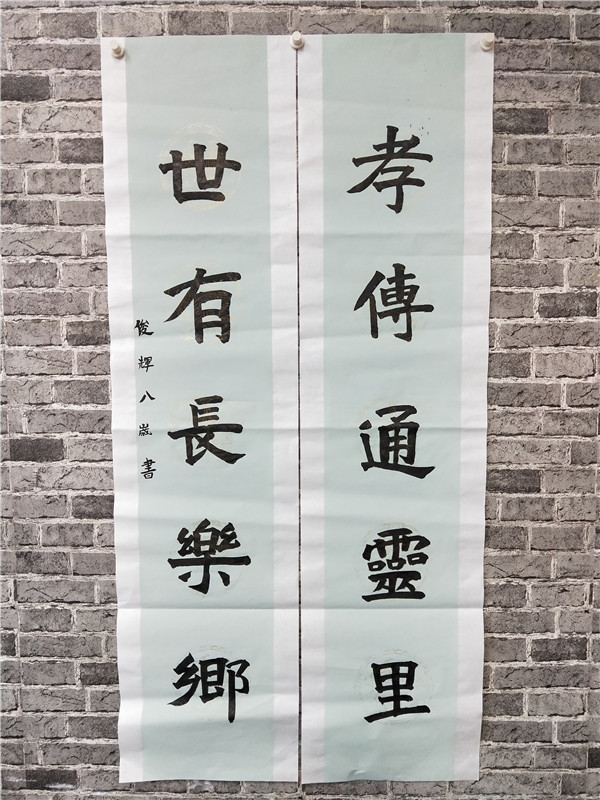 孝傳通靈里
世有長樂鄉
俊輝八歲書